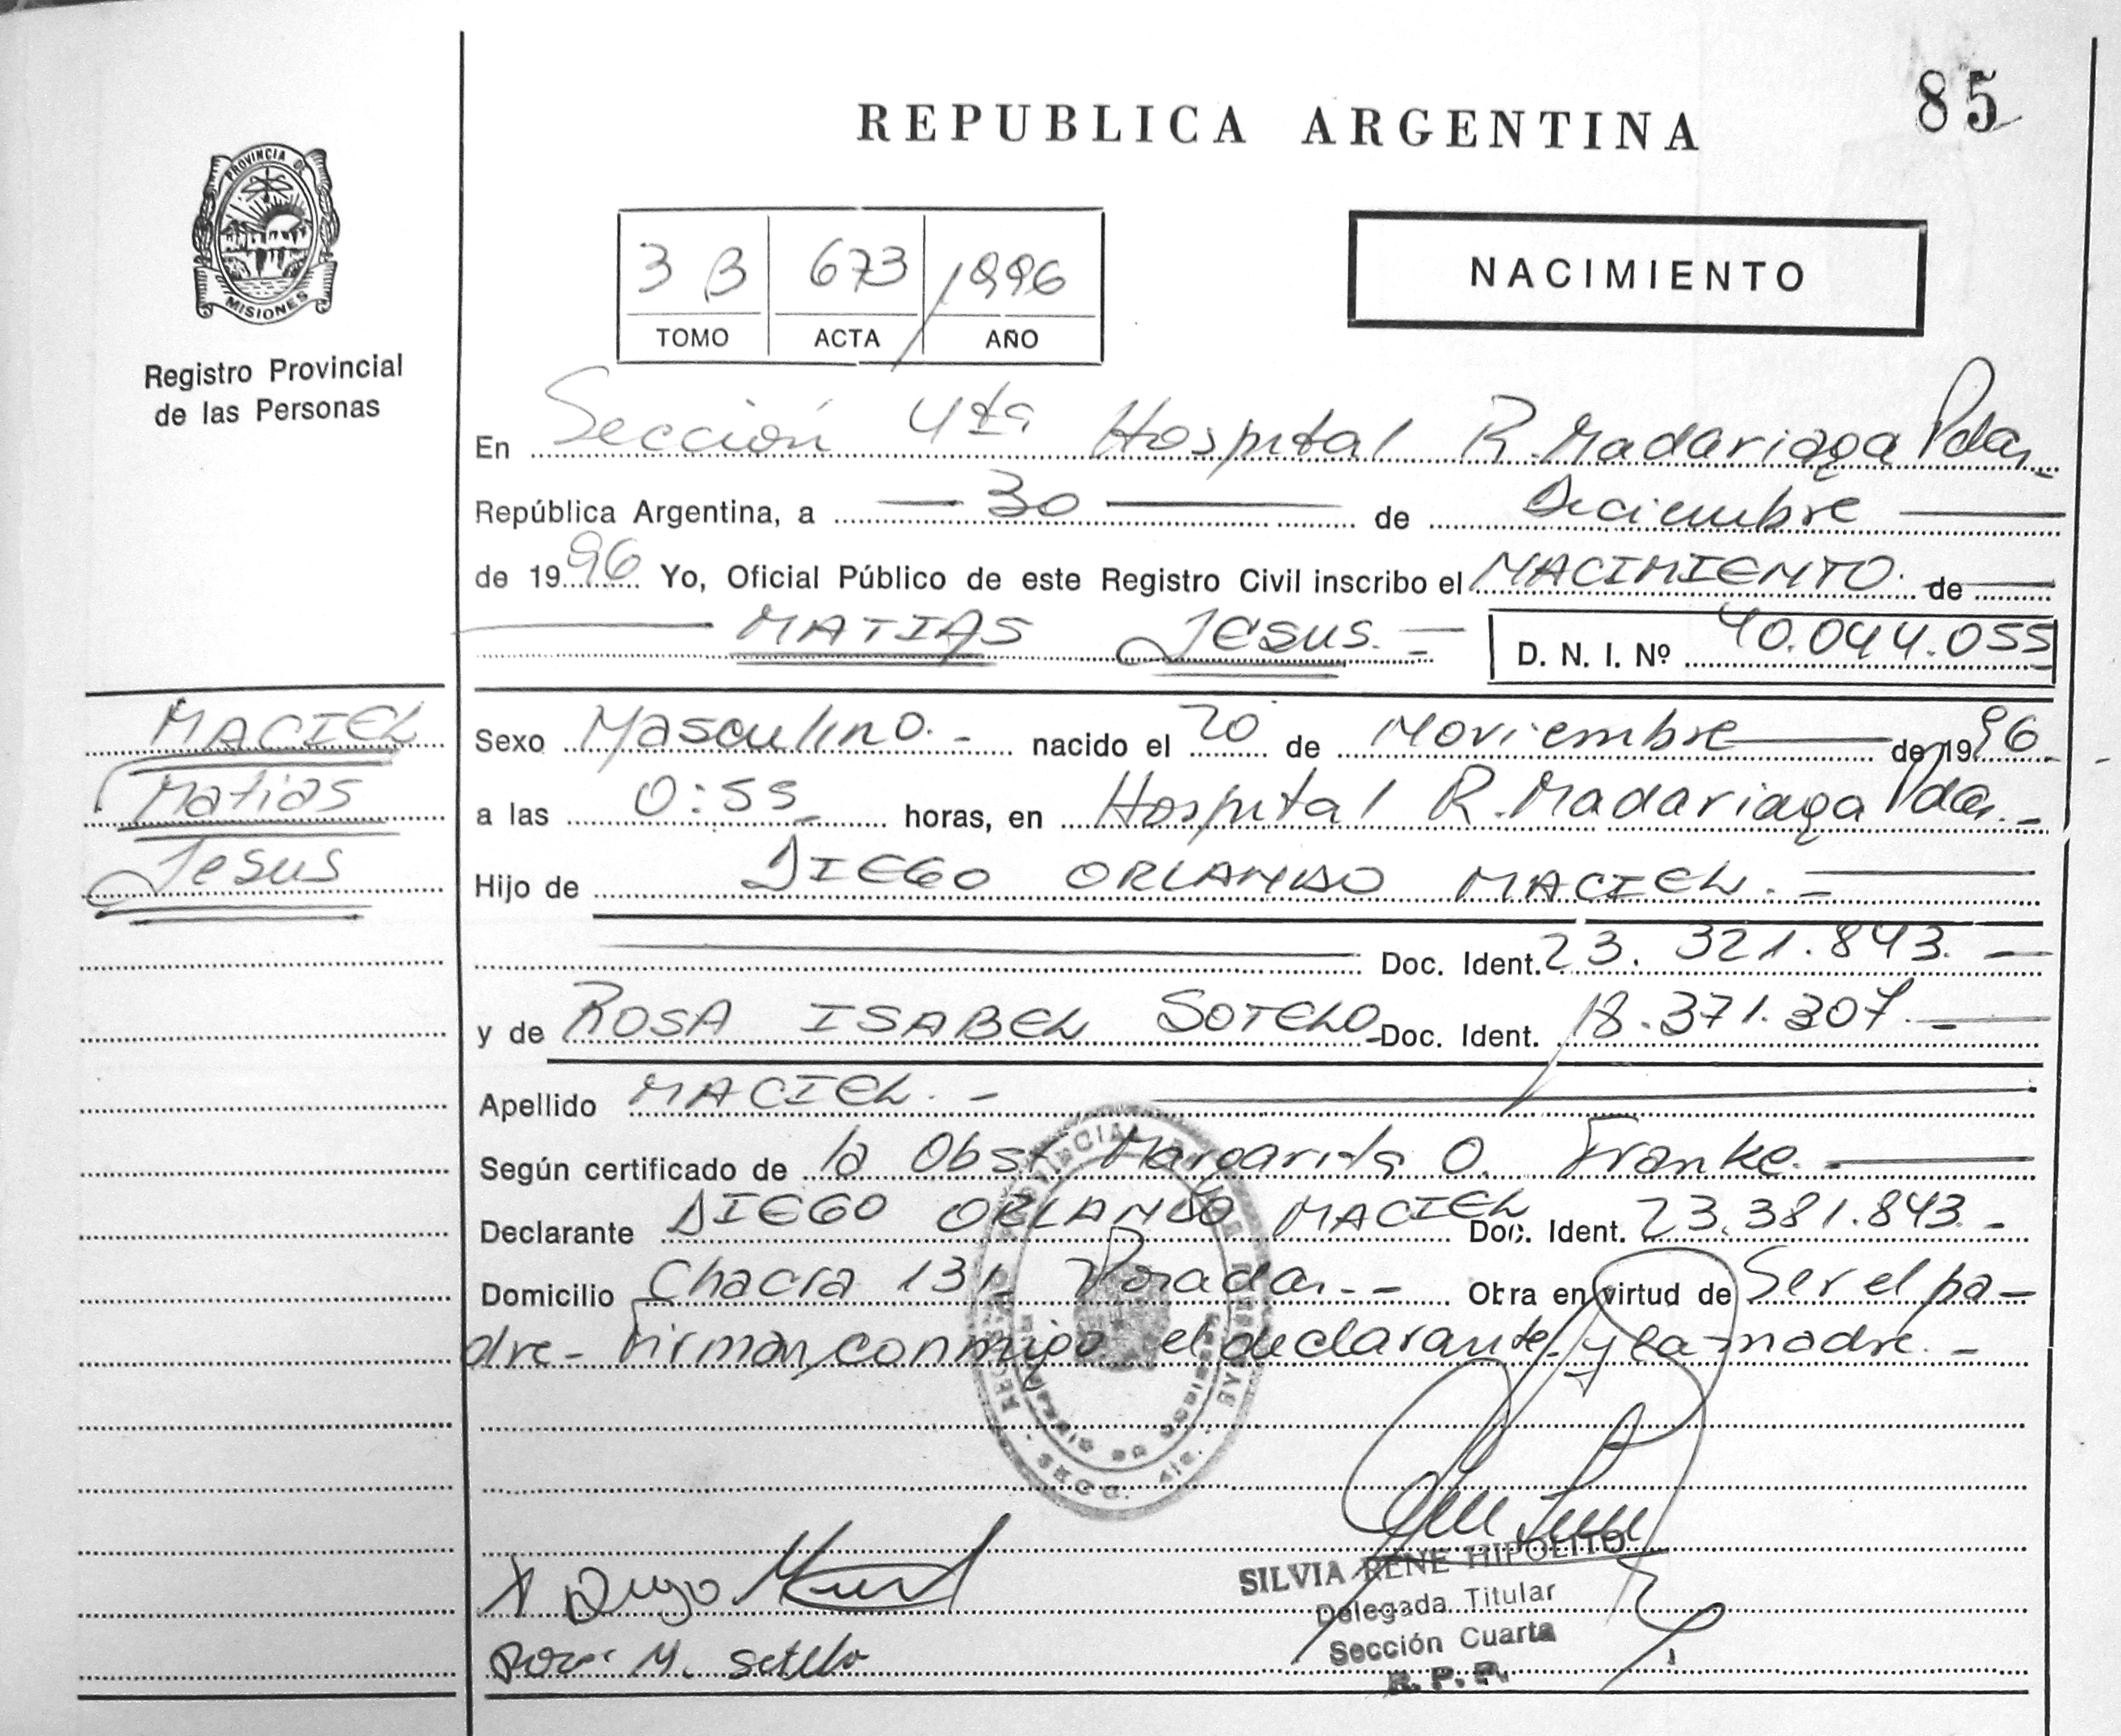 85
REPUBLICA ARGENTINA
PROVINCIA DE
MISIONES
Registro Provincial
de las Personas
3 B 673 1996
TOMO ACTA AÑO
NACIMIENTO
En Sección 4ta Hospital R. Madariaga Pdas.
República Argentina, a — 30 — de Diciembre —
de 1996 Yo, Oficial Público de este Registro Civil inscribo el NACIMIENTO. de —
— MATIAS Jesus. — D. N. I. Nº 40.044.055
MACIEL
Matias
Jesus
Sexo Masculino. - nacido el 20 de Noviembre — de 1996. -
a las 0:55 horas, en Hospital R. Madariaga Pdas. -
Hijo de DIEGO ORLANDO MACIEL. —
— Doc. Ident. 23.321.843. —
y de ROSA ISABEL SOTELO - Doc. Ident. 18.371.307. —
Apellido MACIEL. - —
Según certificado de la Obst Margarita O. Franke. —
Declarante DIEGO ORLANDO MACIEL Doc. Ident. 23.381.843. -
Domicilio Chacra 131 Posadas. - - Obra en virtud de Ser el pa-
dre - Firman conmigo el declarante y la madre. -
SECC. 4ta.
X Diego
M. Sotelo
SILVIA RENE HIPOLITO
Delegada Titular
Sección Cuarta
R. P. P.